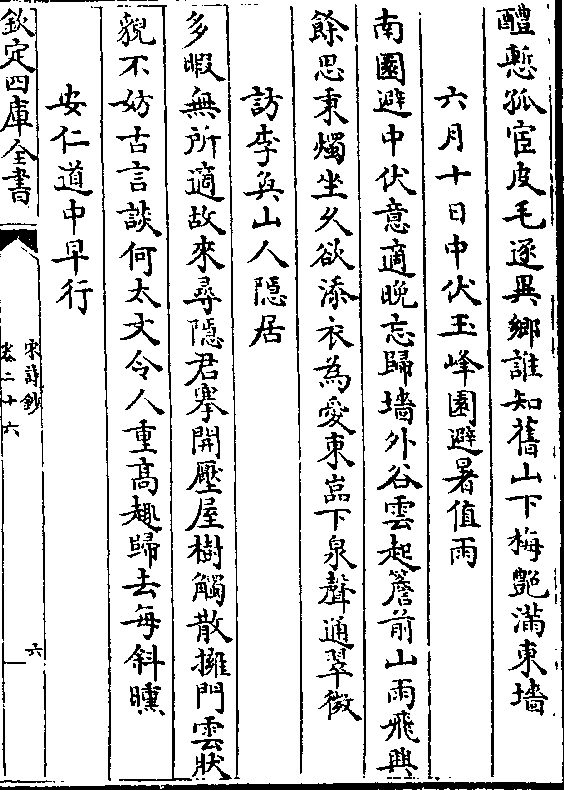 醴慙孤宦皮毛逐異鄉誰知舊山下梅艶滿東墻
六月十日中伏玉峰園避暑值雨
南園避中伏意適晚忘歸墻外谷雲起簷前山雨飛興
餘思秉燭坐久欲添衣為愛東嵓下泉聲通翠微
訪李奐山人隱居
多暇無所適故來尋隱君搴開壓屋樹觸散擁門雲狀
貌不妨古言談何太文令人重高趣歸去每斜曛
安仁道中早行
欽定四庫全書
宋詩鈔
卷二十六
六